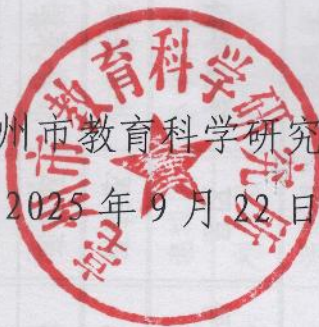 州市教育科学研究
2025年9月22日
州市教育科学研究所